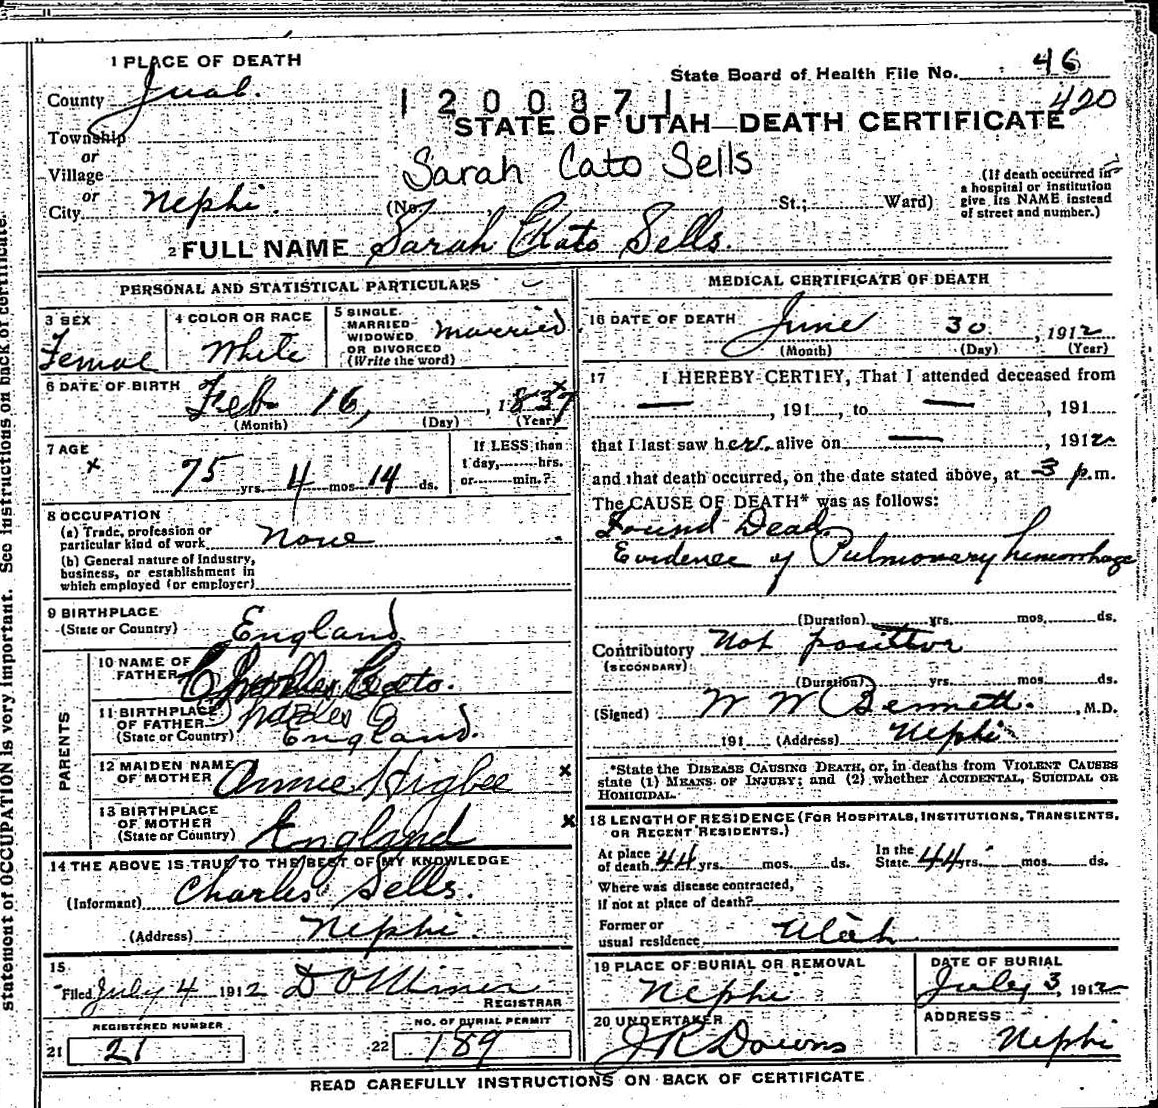 1 PLACE OF DEATH
State Board of Health File No. 46
County Juab.
1200871
420
STATE OF UTAH—DEATH CERTIFICATE
Township
or
Village
or
City Nephi.
Sarah Cato Sells
(No. St.; Ward)
(If death occurred in
a hospital or institution
give its NAME instead
of street and number.)
2 FULL NAME Sarah Kato Sells.
PERSONAL AND STATISTICAL PARTICULARS
3 SEX
Femal
4 COLOR OR RACE
White
5 SINGLE,
MARRIED
WIDOWED
OR DIVORCED
(Write the word)
married
6 DATE OF BIRTH
Feb 16, , 1837
(Month) (Day) (Year)
7 AGE
x
75 yrs. 4 mos. 14 ds.
If LESS than
1 day, hrs.
or min.?
8 OCCUPATION
(a) Trade, profession or
particular kind of work None
(b) General nature of industry,
business, or establishment in
which employed (or employer)
9 BIRTHPLACE
(State or Country) England
PARENTS
10 NAME OF
FATHER Charles Cato.
11 BIRTHPLACE
OF FATHER
(State or Country) England.
12 MAIDEN NAME
OF MOTHER Annie Higbee x
13 BIRTHPLACE
OF MOTHER
(State or Country) England x
14 THE ABOVE IS TRUE TO THE BEST OF MY KNOWLEDGE
(Informant) Charles Sells.
(Address) Nephi
15
Filed July 4 1912
REGISTRAR
REGISTERED NUMBER
21 21
NO. OF BURIAL PERMIT
22 189
MEDICAL CERTIFICATE OF DEATH
16 DATE OF DEATH June 30, 1912
(Month) (Day) (Year)
17 I HEREBY CERTIFY, That I attended deceased from
—, 191, to —, 191
that I last saw her alive on —, 1912
and that death occurred, on the date stated above, at 3 p.m.
The CAUSE OF DEATH* was as follows:
Found Dead
Evidence of Pulmonary hemorrhage
(Duration) yrs. mos. ds.
Contributory Not positive
(SECONDARY)
(Duration) yrs. mos. ds.
(Signed) W W Bennett. , M.D.
191 (Address) Nephi
*State the DISEASE CAUSING DEATH, or, in deaths from VIOLENT CAUSES
state (1) MEANS OF INJURY; and (2) whether ACCIDENTAL, SUICIDAL OR
HOMICIDAL.
18 LENGTH OF RESIDENCE (FOR HOSPITALS, INSTITUTIONS, TRANSIENTS,
OR RECENT RESIDENTS.)
At place
of death 44 yrs. mos. ds.
In the
State 44 yrs. mos. ds.
Where was disease contracted,
if not at place of death?
Former or
usual residence Utah
19 PLACE OF BURIAL OR REMOVAL
Nephi
DATE OF BURIAL
July 3, 1912
20 UNDERTAKER
ADDRESS
Nephi
READ CAREFULLY INSTRUCTIONS ON BACK OF CERTIFICATE
statement of OCCUPATION is very important. See instructions on back of certificate.